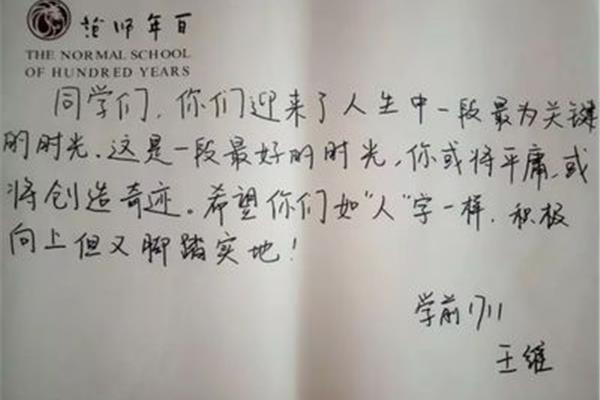 范师年百
THE NORMAL SCHOOL
OF HUNDRED YEARS
同学们,你们迎来了人生中一段最为关键
的时光、这是一段最好的时光,你或将平庸,或
将创造奇迹。希望你们如“人”字一样,积极
向上但又脚踏实地!
学前1711
王维